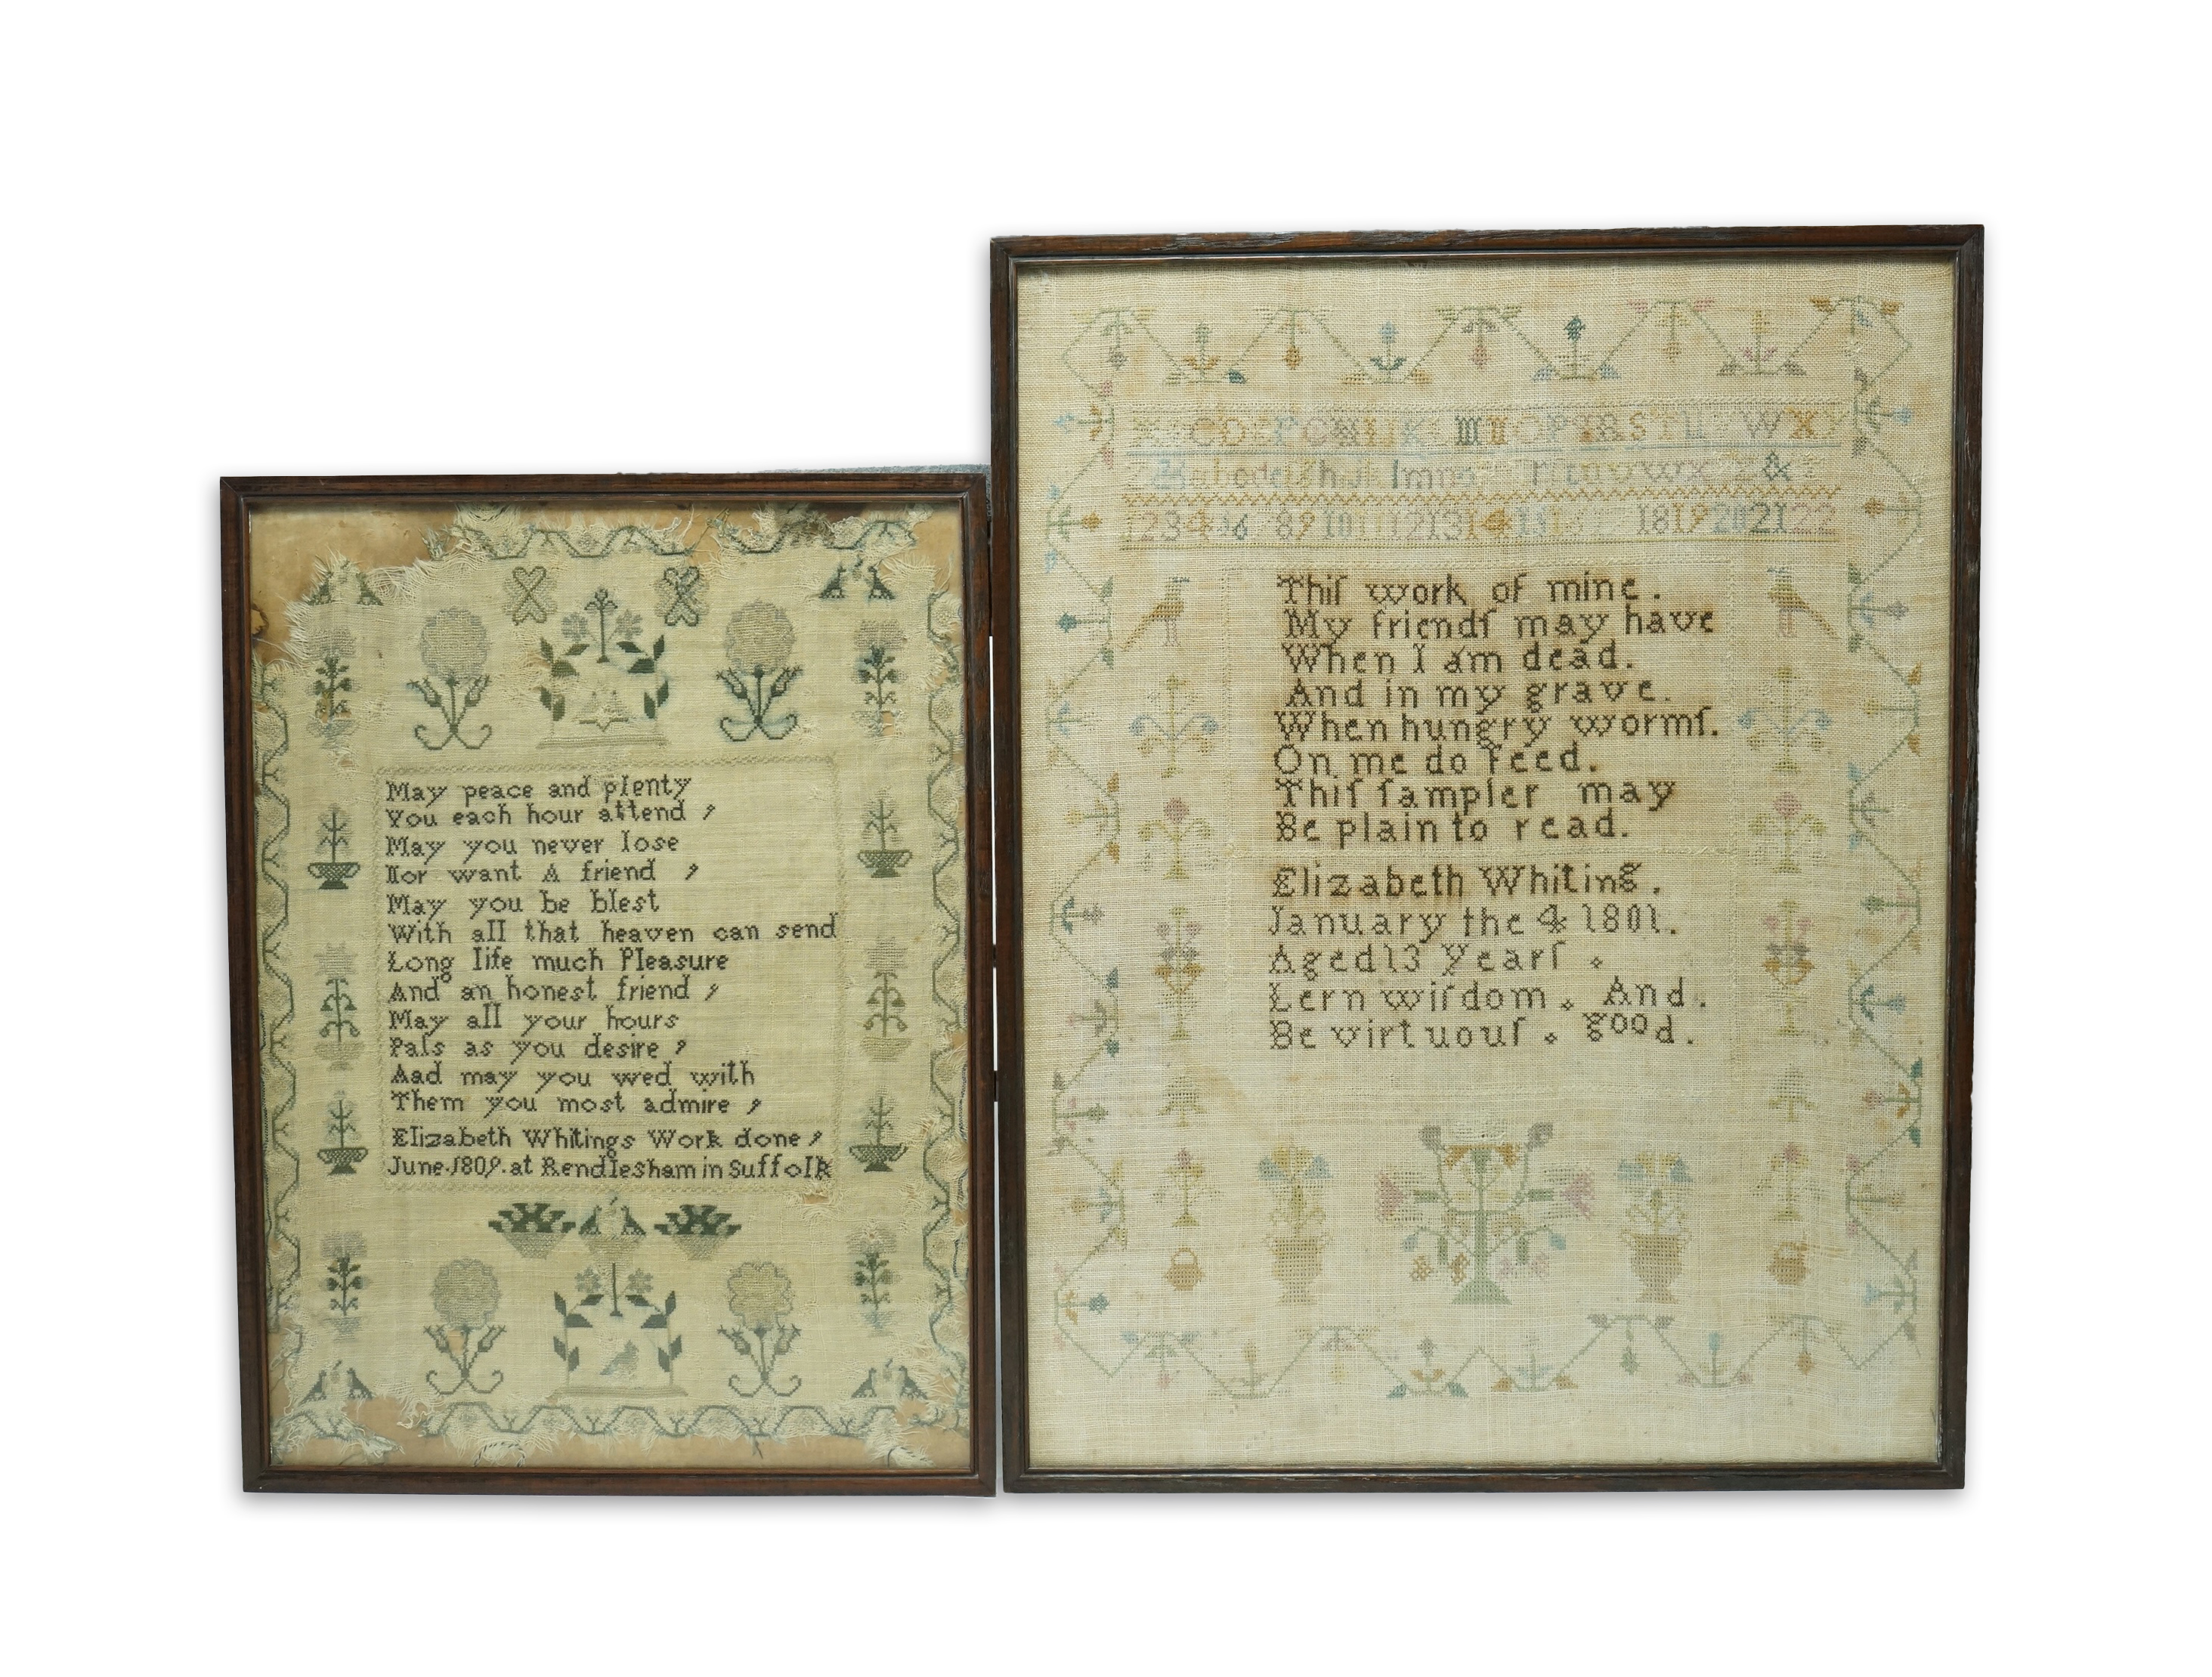 May peace and plenty
You each hour attend ,
May you never lose
Nor want A friend ,
May you be blest
With all that heaven can send
Long life much Pleasure
And an honest friend ,
May all your hours
Paſs as you desire ,
Aad may you wed with
Them you most admire ,
Elizabeth Whitings Work done ,
June.1809.at Rendlesham in Suffolk
W X Y
l m n & 
2 3 4 6 8 9 10 11 12 13 14 18 19 20 21 22
Thiſ work of mine .
My friendſ may have
When I am dead .
And in my grave .
When hungry wormſ .
On me do feed .
Thiſ ſampler may
Be plain to read .
Elizabeth Whiting .
January the 4 1801 .
Aged 13 Yearſ .
Lern wiſdom . And .
Be virtuouſ . good .